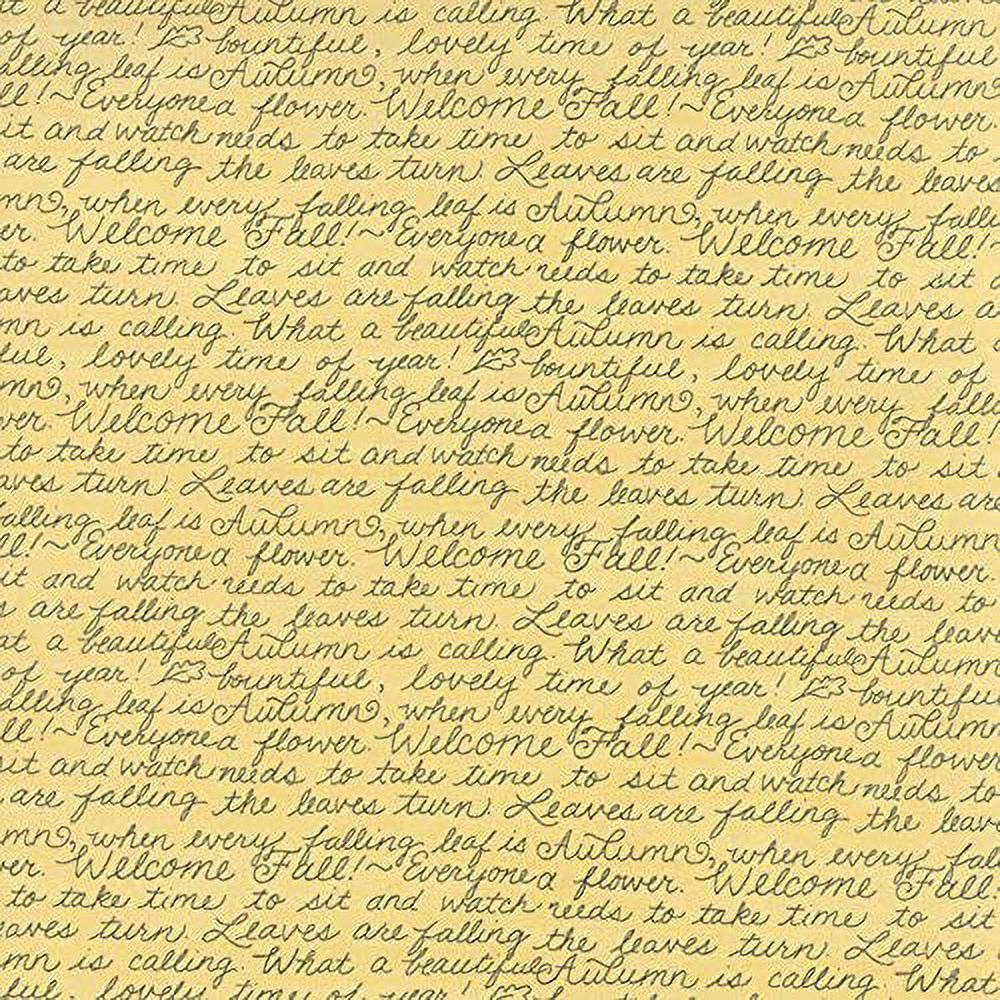 t a beautiful Autumn is calling. What a beautiful Autumn
of year! bountiful, lovely time of year! bountiful
alling leaf is Autumn, when every falling leaf is Autumn,
ll! ~ Everyone a flower. Welcome Fall! ~ Everyone a flower.
it and watch needs to take time to sit and watch needs to
are falling the leaves turn. Leaves are falling the leaves
mn, when every falling leaf is Autumn, when every falli
er. Welcome Fall! ~ Everyone a flower. Welcome Fall! ~
to take time to sit and watch needs to take time to sit a
aves turn. Leaves are falling the leaves turn. Leaves a
mn is calling. What a beautiful Autumn is calling. What a
ful, lovely time of year! bountiful, lovely time of
mn, when every falling leaf is Autumn, when every fall
wer. Welcome Fall! ~ Everyone a flower. Welcome Fall!
to take time to sit and watch needs to take time to sit
aves turn. Leaves are falling the leaves turn. Leaves are
falling leaf is Autumn, when every falling leaf is Autumn
ll! ~ Everyone a flower. Welcome Fall! ~ Everyone a flower.
it and watch needs to take time to sit and watch needs to
s are falling the leaves turn. Leaves are falling the leav
at a beautiful Autumn is calling. What a beautiful Autumn
of year! bountiful, lovely time of year! bountiful
alling leaf is Autumn, when every falling leaf is Autumn
ll! ~ Everyone a flower. Welcome Fall! ~ Everyone a flower
it and watch needs to take time to sit and watch needs to
are falling the leaves turn. Leaves are falling the leav
mn, when every falling leaf is Autumn, when every fal
er. Welcome Fall! ~ Everyone a flower. Welcome Fall!
to take time to sit and watch needs to take time to sit
eaves turn. Leaves are falling the leaves turn. Leaves
mn is calling. What a beautiful Autumn is calling. What
ful, lovely time of year! bountiful, lovely time of